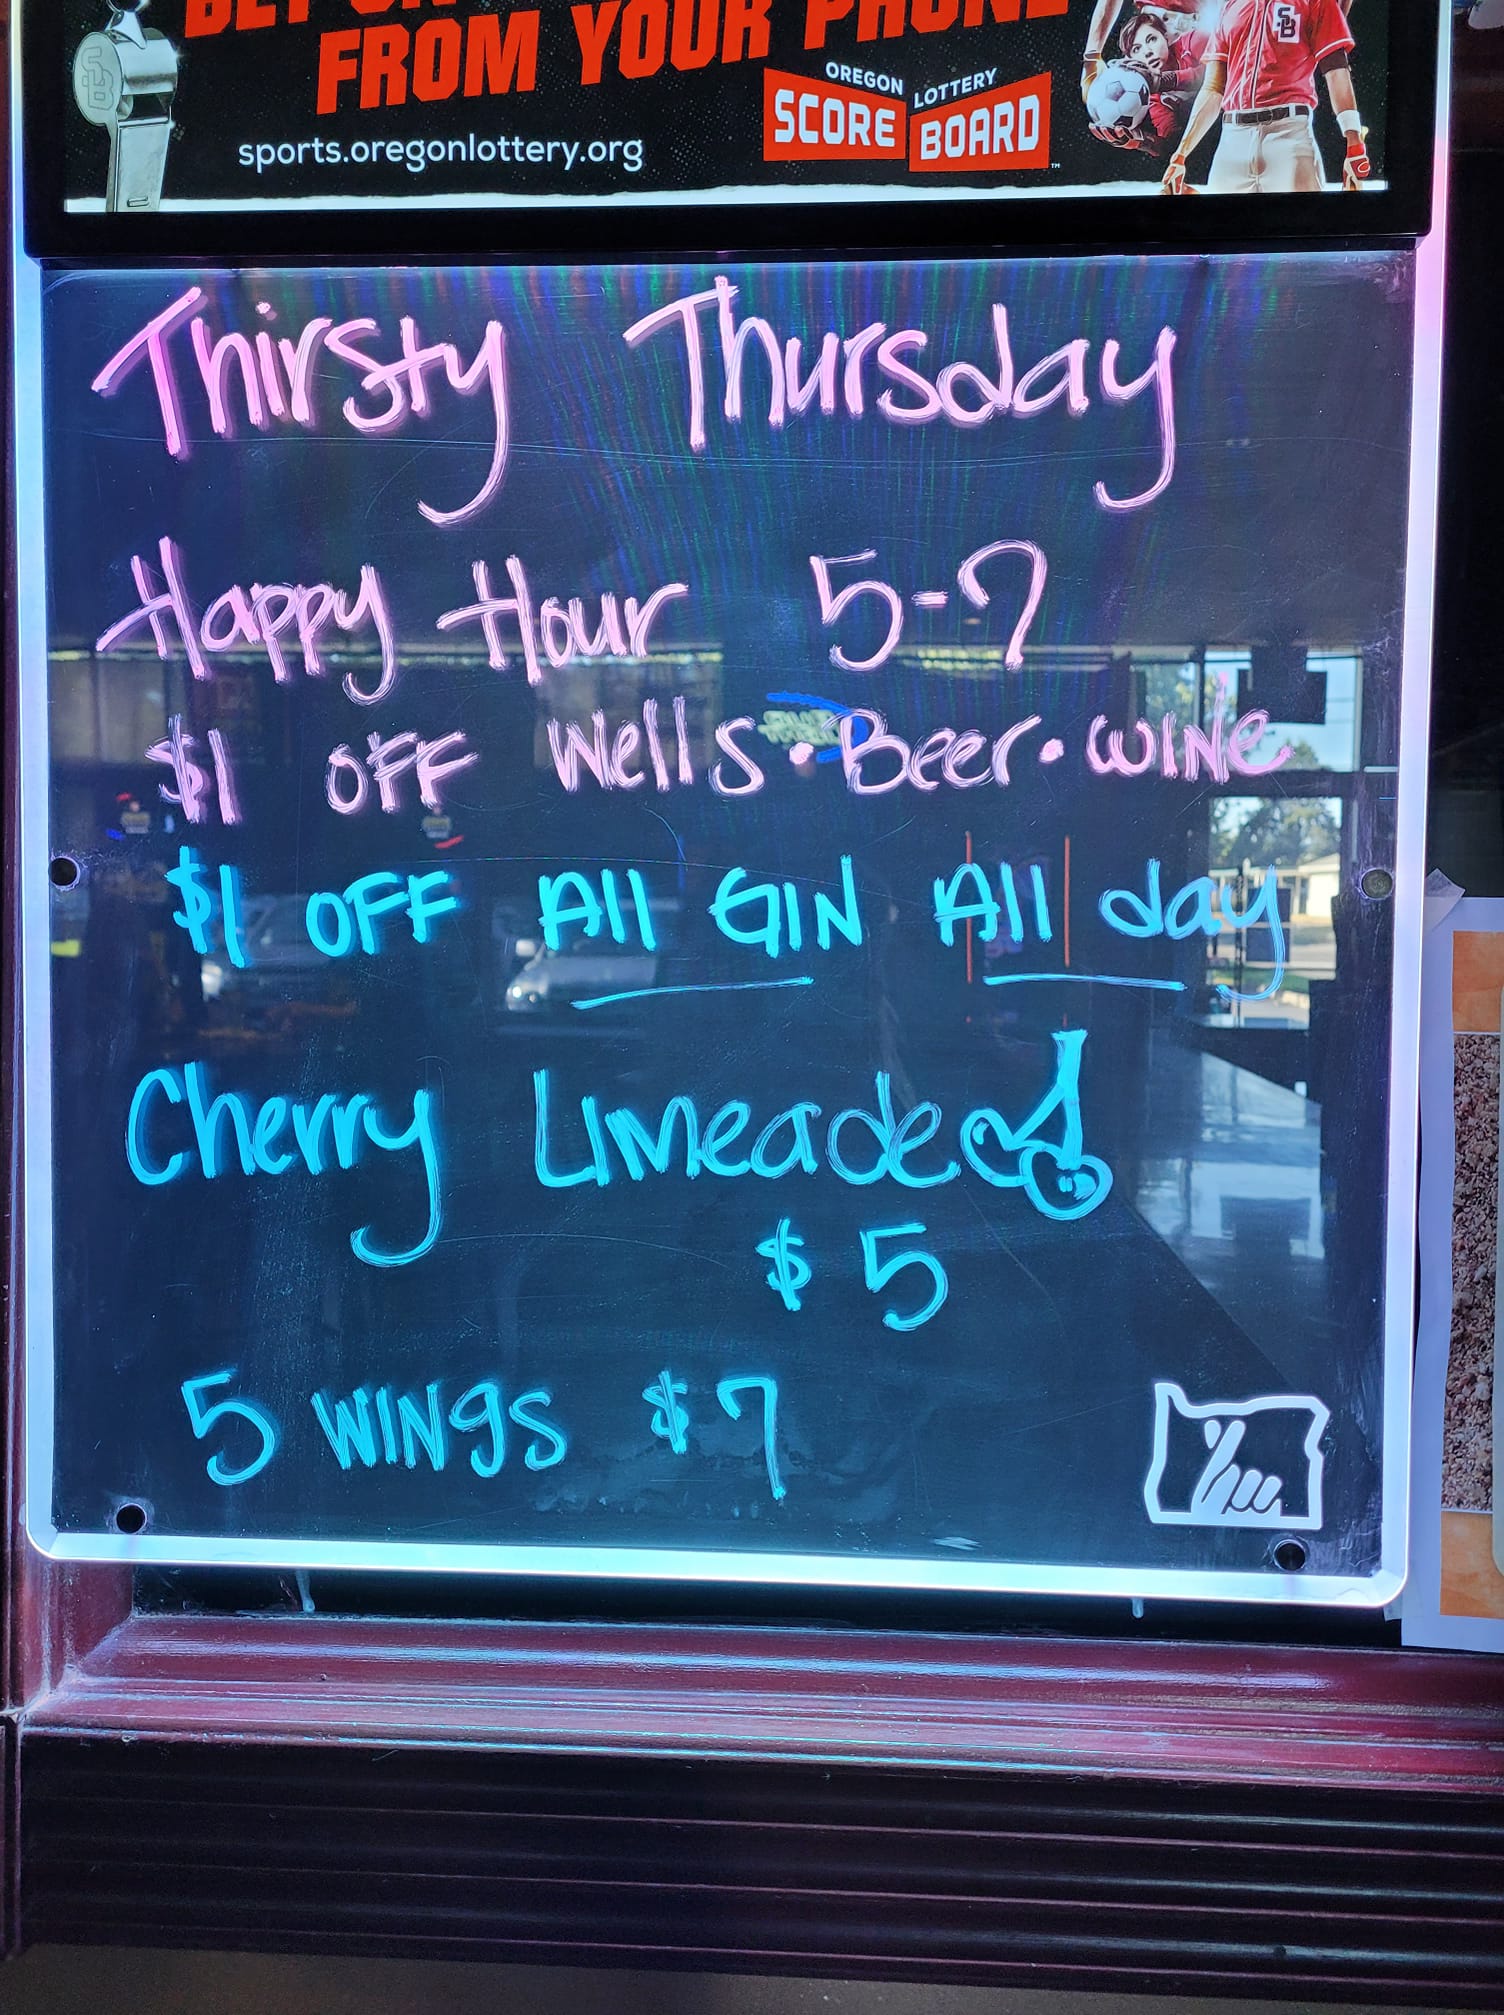 FROM YOUR PHONE
OREGON LOTTERY
SCORE BOARD
TM
sports.oregonlottery.org
SB
SB
Thirsty Thursday
Happy Hour 5-7
$1 OFF Wells • Beer • WINe
$1 OFF All GIN All day
Cherry LIMeade
$5
5 WINgS $7